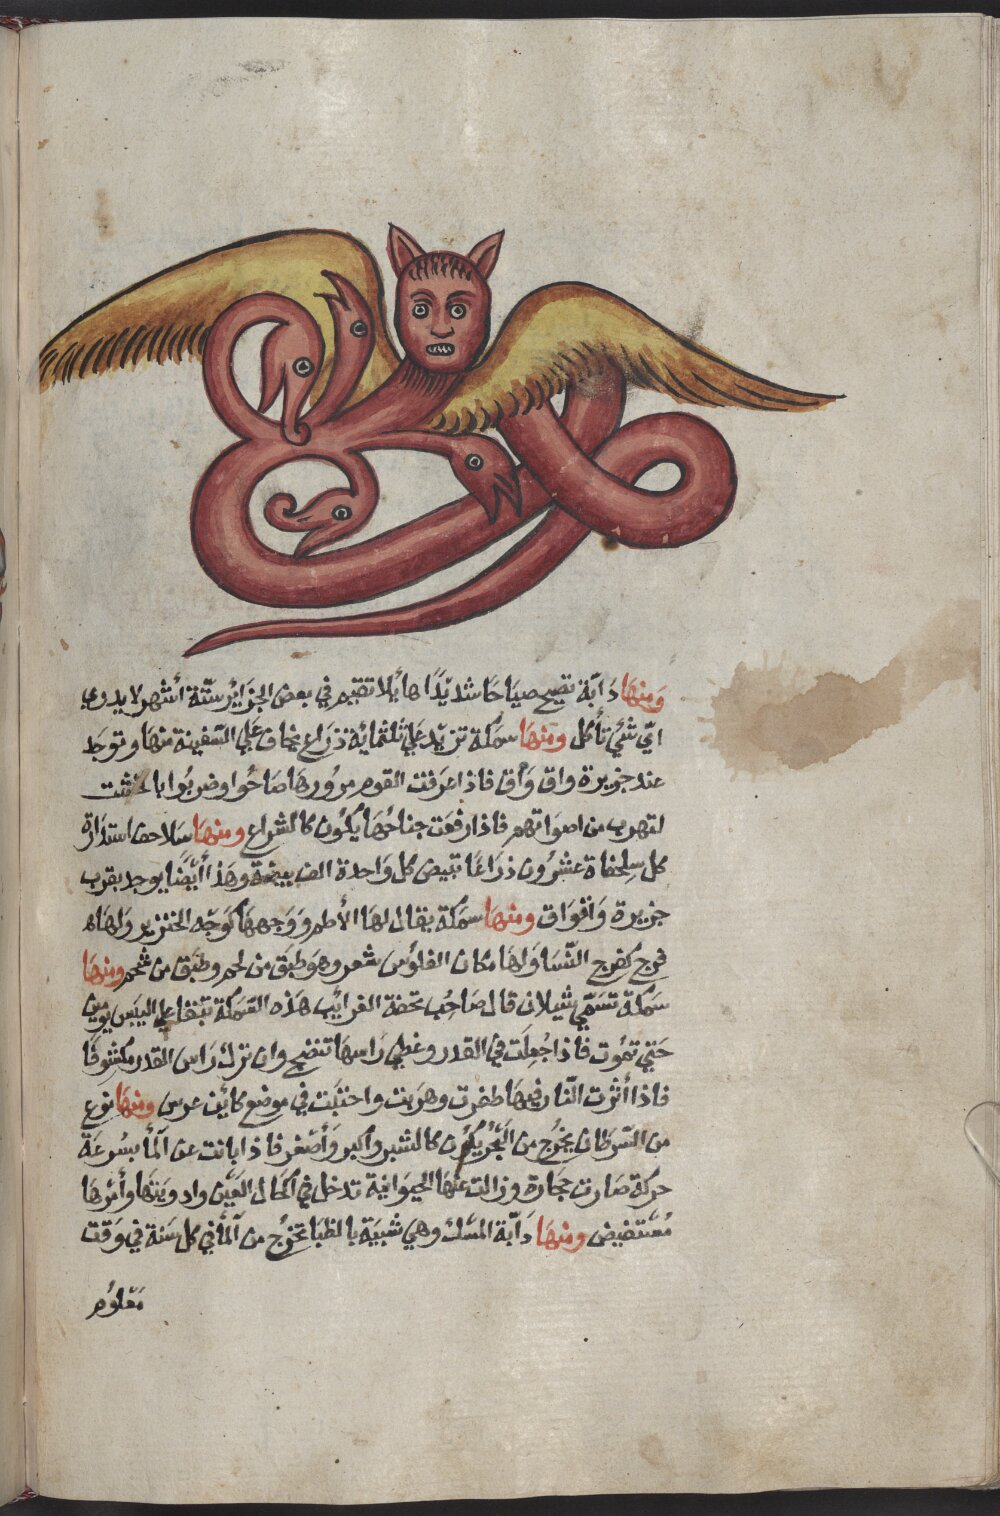 ومنها دَابّة تصيح صيَاحًا شديدًا هَايُلا تقيم في بعض الجزَايُر ستّة أشهر لا يدري
ايّ شئَ تأكل ومنهَا سمَكة تزيد عَليَ ثلثمائة ذرَاع يخاف عَلي السّفينة منهَا وتوجَد
عند جزيرة واق وَاق فاذا عرَفت القوم مرُورهَا صَاحُوا وضربُوا بالخَشَب
لتهرب من اصوَاتهم فاذا رفعَت جناحُهَا يكُون كالشراع ومنهَا سَلاحف استدَارة
كل سِلحفاة عشرُون ذرَاعًا تبيض كل وَاحدة الف بيضة وهَذا أيْضًا يوجد بقرب
جزيرة وَاقوَاق ومنهَا سمَكة يقال لهَا الأطم وَوَجههَا كوَجه الخنزير وَلهَا
فرج كفرج النّسَا وَلهَا مكان الفلوُس شعر وهوَ طبَق من لحم وطبَق من شحَم ومنهَا
سَمكة تسَمّي شيلان قال صَاحُب تحفة الغرايُب هَذه السّمَكة تبقَا علي اليبَس يومين
حَتي تمُوت فاذا جُعلَت في القدر وغطي رَاسهَا تنضج وان ترك رَاس القدر مكشوفًا
فاذا أثرت النّار فيهَا طفرت وهرَبت واختبَت في موضع كابنت عرس ومنهَا نوع
من السّرطان يخرُج من البَحْر يكوُن كالشبر واكبر وَأصْغر فاذا بانت عن المَأ بسُرعَة
حركة صَارت حجَارة وزالت عنهَا الحيوَانية تدخل في اكحَال العَيْن وادويَتهَا وأمْرهَا
مُسْتفيض ومنهَا دَآبّة المسْك وهي شبيَة بالظبَا تخرُج من المَأ في كل سَنة في وَقت
مَعْلوُم